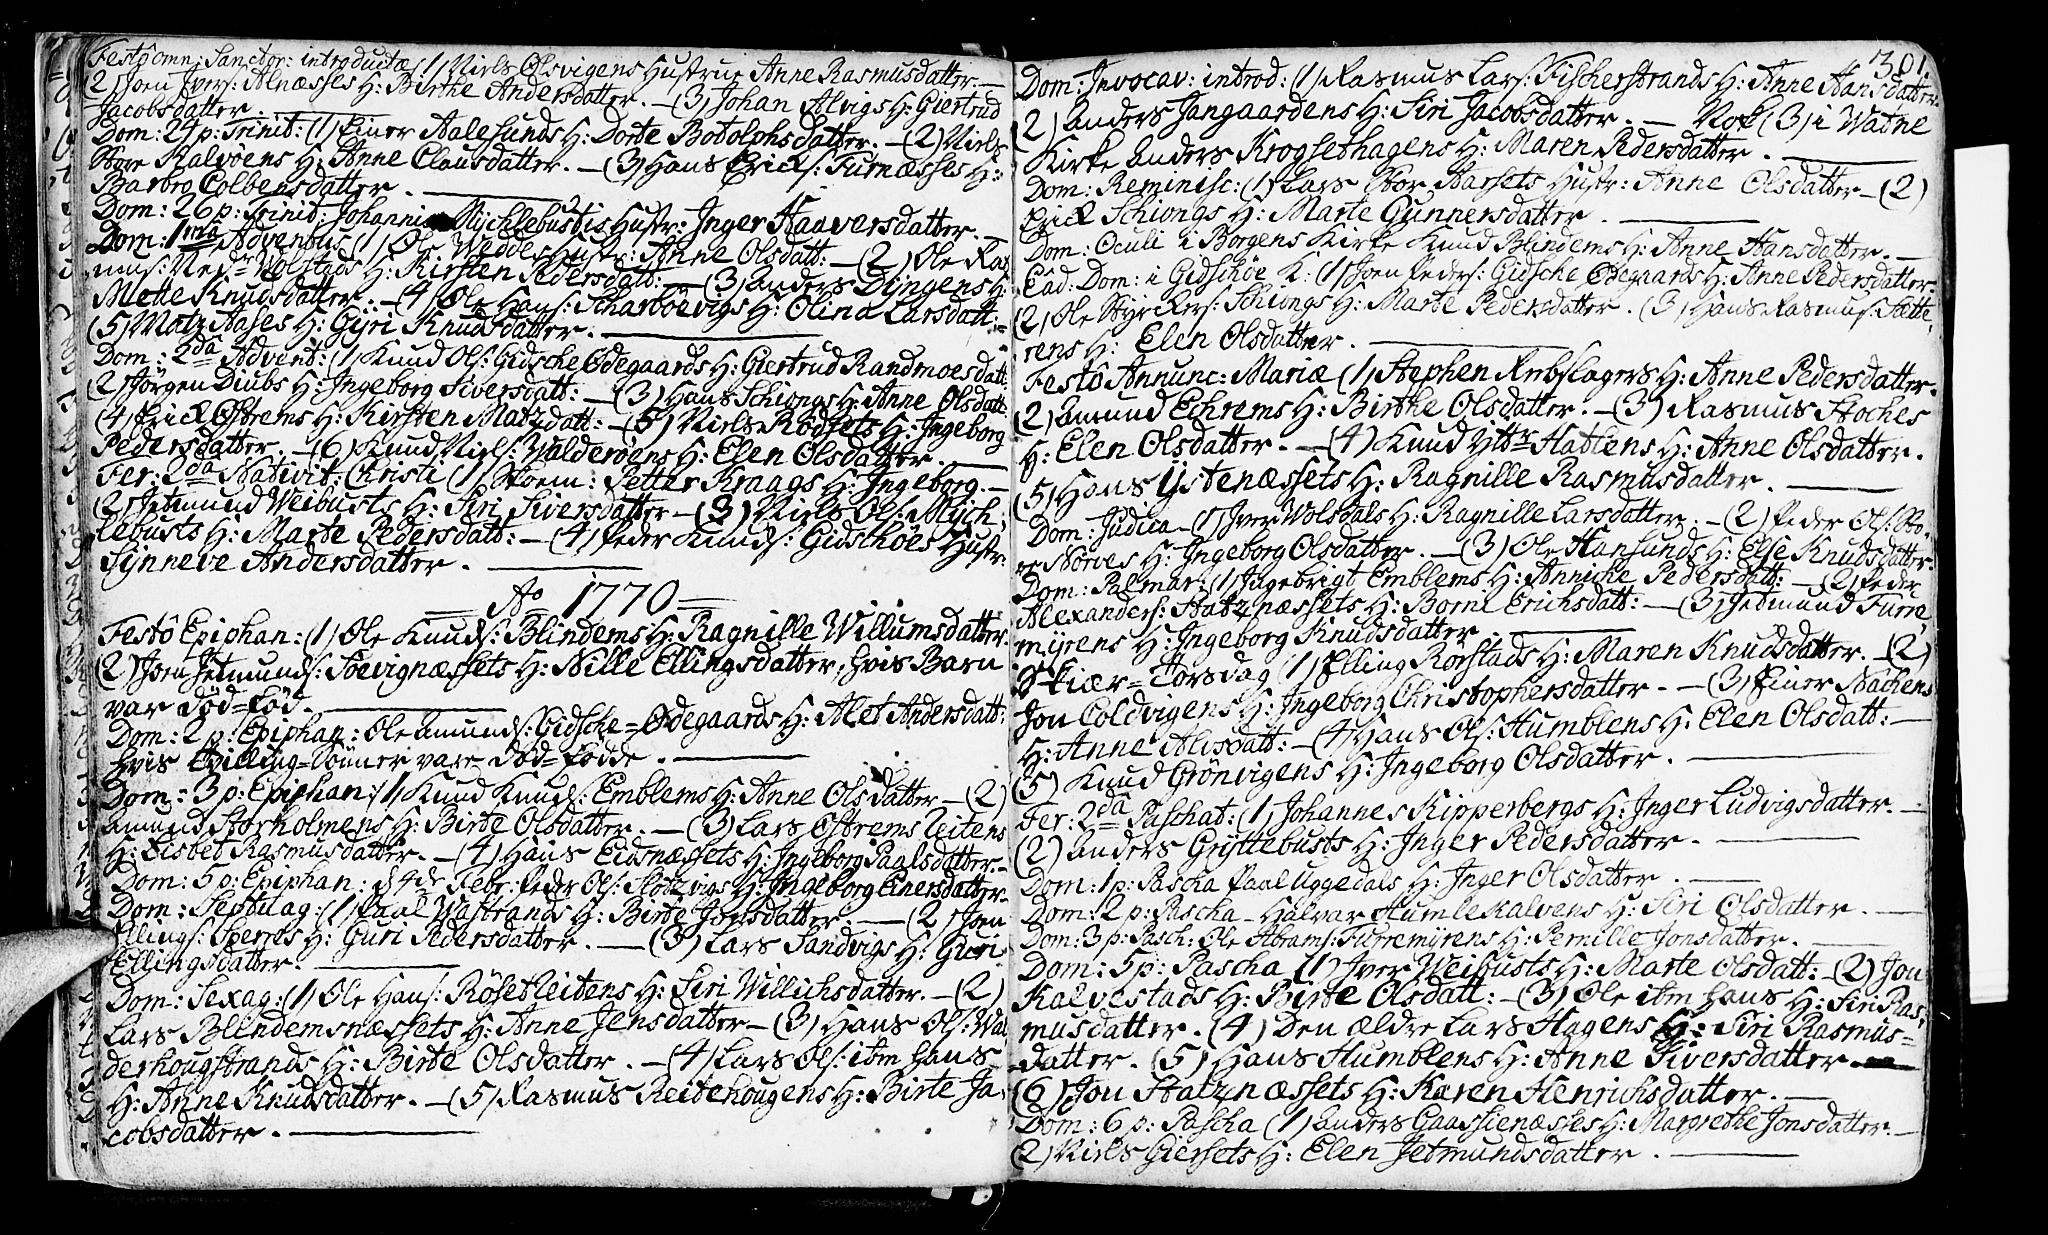 Festô omn: Sanctor: introductæ (1) Niels Olsvigens Hustrue Anne Rasmusdatter. —
2) Joen Ivers: Alnæsses H: Birthe Andersdatter. — (3) Johan Alvigs H: Giertrud
Jacobsdatter. —
Dom: 24 p: Trinit: (1) Einer Aalesunds H: Dorte Botolphsdatter. — (2) Niels
Store Kalvøens H: Anne Clausdatter. — (3) Hans Erichs: Furnæsses H:
Barbro Colbensdatter. —
Dom: 26 p: Trinit: Johannis Mychlebustis Hustr: Inger Haaversdatter. —
Dom: 1ma Adventus (1) Ole Weddes Hustr: Anne Olsdatt: — (2) Ole Ras
mus: Nedr Wolstads H: Kirsten Pedersdatt: — (3) Anders Dyngens H:
Mette Knudsdatter. — (4) Ole Hans: Scharboevigs H: Olina Larsdatt: —
(5) Matz Aases H: Gyri Knudsdatter. —
Dom: 2da Advent: (1) Knud Ols: Gidsche Ødegaards H: Giertrud Randmoesdatt:
(2) Jørgen Diubs H: Ingeborg Siversdatt: — (3) Hans Schiongs H: Anne Olsdatt:
(4) Erick Østrems H: Kirsten Matzdatt: — (5) Niels Rødsets H: Ingeborg
Pedersdatter. — (6) Knud Niels: Walderøens H: Elen Olsdatter. —
Fer: 2da Nativit: Christi (1) Skoem: Petter Kraags H: Ingeborg. —
(2) Jetmund Weibusts H: Siri Siversdatter — (3) Niels Ols: Mych-
lebusts H: Marte Pedersdatt: — (4) Peder Knuds: Gidschøes Hustr:
Synneve Andersdatter. —
Ao 1770
Festô Epiphan: (1) Ole Knuds: Blindems H: Ragnille Willumsdatter.
(2) Joen Jetmunds: Soevignæssets H: Nille Ellingsdatter, hvis Barn
var død-fød. —
Dom: 2 p: Epiphan: Ole Amunds: Gidsche-Ødegaards H: Alet Andersdatt:
hvis Tvilling-Sønner vare død-fødde. —
Dom: 3 p: Epiphan: (1) Knud Knuds: Emblems H: Anne Olsdatter — (2)
Amund Storholmens H: Birte Olsdatter. — (3) Lars Østrems Leitens
H: Lisbet Rasmusdatter. — (4) Hans Eidnæssets H: Ingeborg Paalsdatter. —
Dom: 5 p: Epiphan: d 4de Febr: Peder Ols: Slotzvigs H: Ingeborg Einersdatter.
Dom: Septuag: (1) Paal Wastrands H: Birte Jonsdatter. — (2) Joen
Ellings: Sperres H: Guri Pedersdatter. — (3) Lars Sandvigs H: Guri
Ellingsdatter. —
Dom: Sexag: (1) Ole Hans: Røsetleitens H: Siri Willichsdatter. — (2)
Lars Blindemsnæssets H: Anne Jensdatter — (3) Hans Ols: Wal
derhougstrands H: Birte Olsdatter. — (4) Lars Ols: ibm hans
H: Anne Knudsdatter. — (5) Rasmus Reitehougens H: Birte Ja-
cobsdatter. —
301.
Dom: Invocav: introd: (1) Rasmus Lars: Fischerstrands H: Anne Hansdatter.
2) Anders Jangaardens H: Siri Jacobsdatter. — Nok (3) i Watne
Kirke Anders Krogsethagens H: Maren Pedersdatter. —
Dom: Reminisc: (1) Lars Stor Aarsets Hustr: Anne Olsdatter — (2)
Erick Schiongs H: Marte Gunnersdatter. —
Dom: Oculi i Borgens Kirke Knud Blindems H: Anne Hansdatter. —
Eâd: Dom: i Gidschøe K: (1) Joen Peders: Gidsche Ødegaards H: Anne Pedersdatter.
(2) Ole Styrkers: Schiongs H: Marte Pedersdatter. (3) Hans Rasmus: Sætte-
rens H: Elen Olsdatter. —
Festô Annunc: Mariæ (1) Stephen Rebslagers H: Anne Pedersdatter.
(2) Amund Echrems H: Birthe Olsdatter. — (3) Rasmus Stoches
H: Elen Olsdatter. — (4) Knud Yttr Hatlens H: Anne Olsdatter.
(5) Hans Ystenæssets H: Ragnille Rasmusdatter. —
Dom: Judica — (1) Iver Wolsdals H: Ragnille Larsdatter. — (2) Peder Ols: Sto-
re Nørves H: Ingeborg Olsdatter. — (3) Ole Hansunds H: Else Knudsdatter.
Dom: Palmar: (1) Ingebrigt Emblems H: Anniche Pedersdatt: — (2) Peder
Alexanders: Statznæssets H: Borni Erichsdatt: — (3) Jetmund Furre-
myrens H: Ingeborg Knudsdatter —
Skiær-Torsdag (1) Elling Rørstads H: Maren Knudsdatter. — (2)
Jon Coldvigens H: Ingeborg Christophersdatter. — (3) Einer Nachens
H: Anne Alvsdatt: — (4) Hans Ols: Humblens H: Elen Olsdatt: —
(5) Knud Grønvigens H: Ingeborg Olsdatter. —
Fer: 2dâ Paschat: (1) Johannes Kipperbergs H: Inger Ludvigsdatter. —
(2) Anders Gryttebusts H: Inger Pedersdatter. —
Dom: 1 p: Pascha Paal Uggedals H: Inger Olsdatter. —
Dom: 2 p: Pascha — Halvar Humlekalvens H: Siri Olsdatter. —
Dom: 3 p: Pasch: Ole Abrams: Furremyrens H: Pernille Jonsdatter. —
Dom: 5 p: Pascha (1) Iver Weibusts H: Marte Olsdatt: — (2) Jon
Kalvestads H: Birte Olsdatt: — (3) Ole ibm hans H: Siri Ras-
musdatter. (4) Den ældre Lars Hagens H: Siri Rasmus-
datter. (5) Hans Humblens H: Anne Siversdatter —
(6) Jon Statznæssets H: Karen Henrichsdatter. —
Dom: 6 p: Pascha (1) Anders Gaassienæsses H: Margrethe Jonsdatter. —
(2) Niels Giersets H: Elen Jetmundsdatter. —